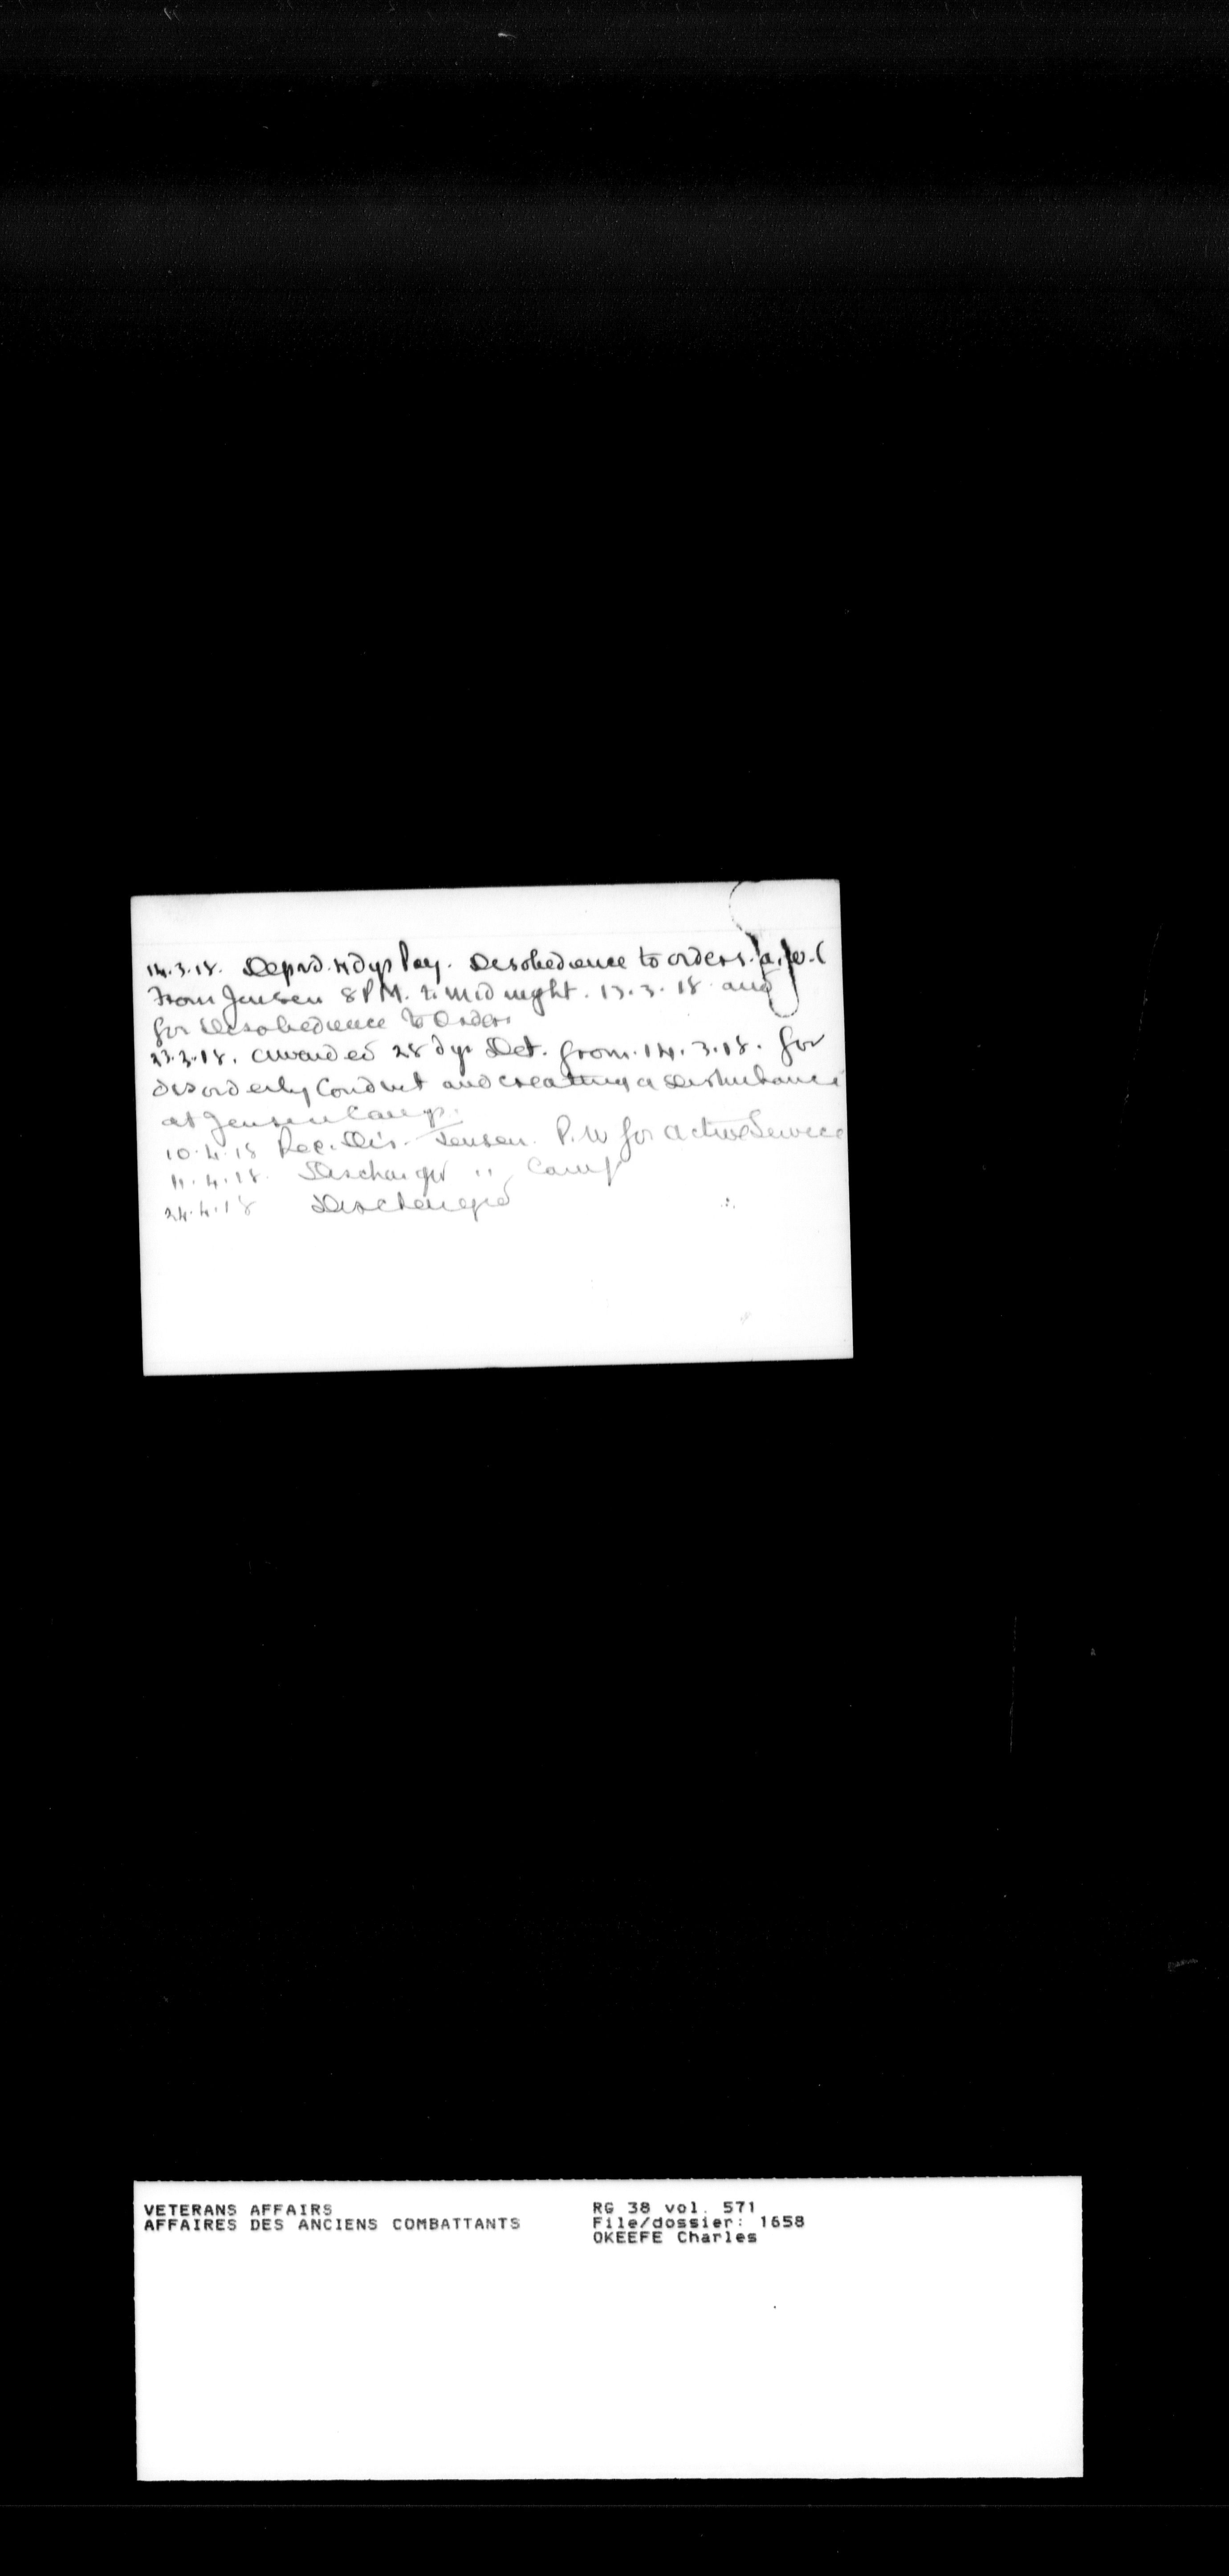 14.3.18. Deprvd. 4 dys Pay. Disobedience to orders. a.w.l
From Jensen 8 P.M. to Midnight. 13.3.18 and
for Disobedience to Orders
23.3.18. awarded 28 dys Det. from. 14.3.18. for
disorderly Conduct and creating a Disturbance
at Jensen Camp.
10.4.18 Rec. Dis. Jensen. P.U for active Service
11.4.18. Discharged " Camp
24.4.18 Discharged
VETERANS AFFAIRS
AFFAIRES DES ANCIENS COMBATTANTS
RG 38 vol. 571
File/dossier: 1658
OKEEFE Charles